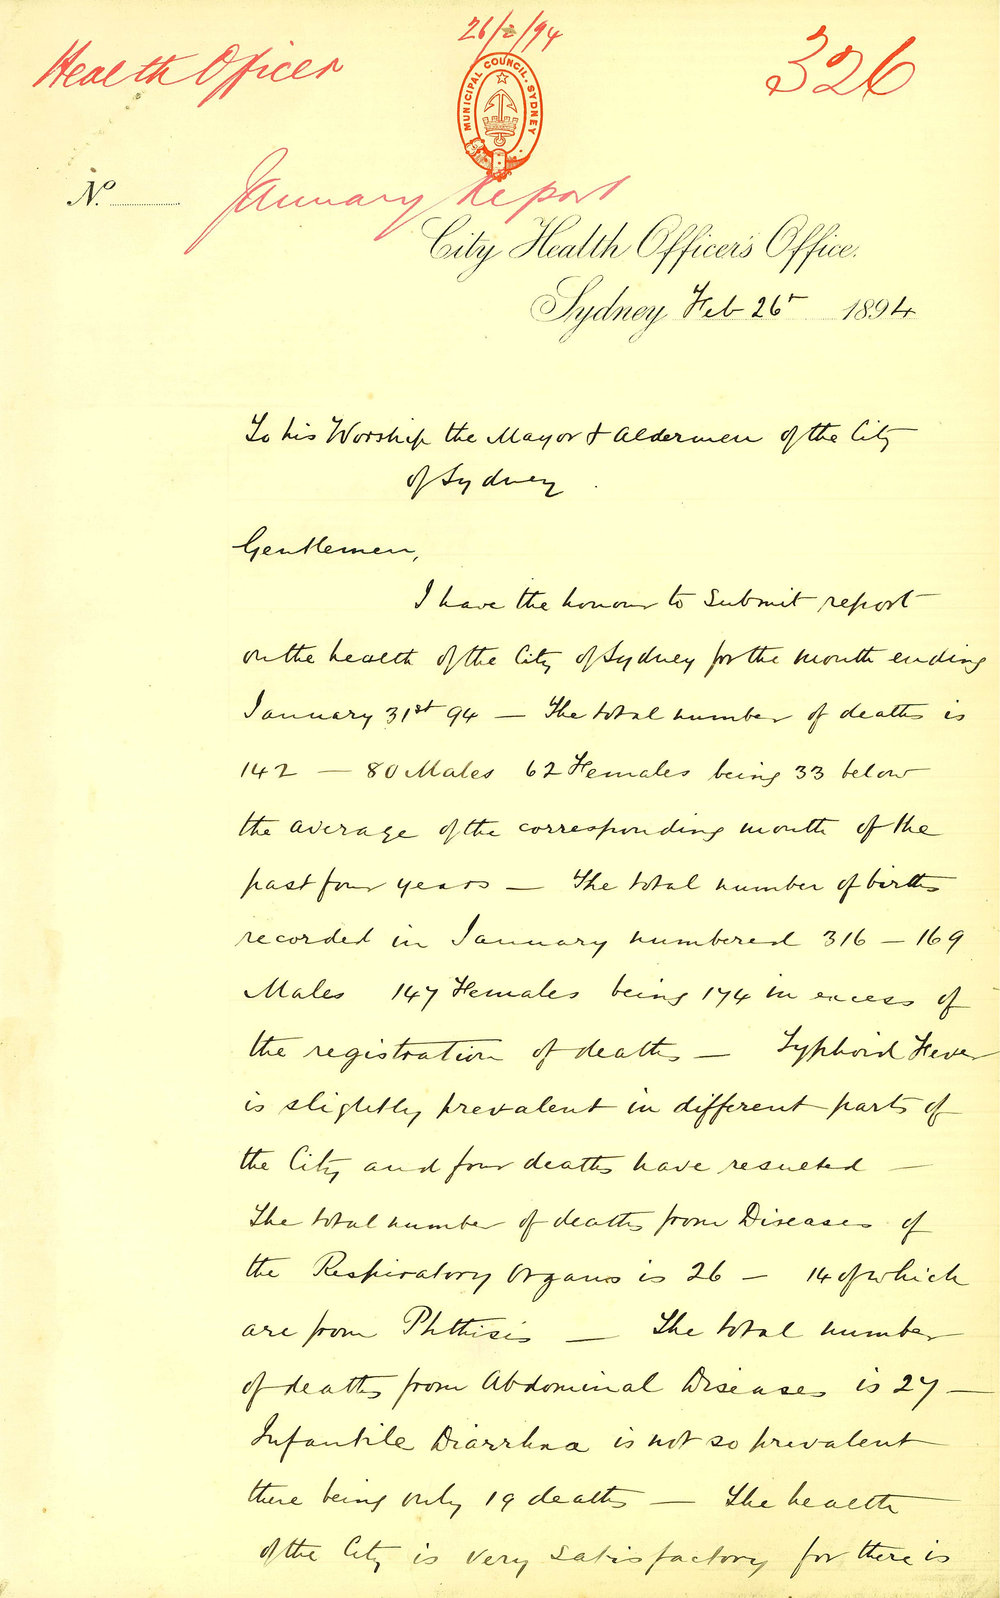 26/2/94
Health Officer
326
MUNICIPAL COUNCIL. SYDNEY
No.
January Report
City Health Officer's Office.
Sydney Feb 26t 1894
To his Worship the Mayor & Aldermen of the City
of Sydney.
Gentlemen,
I have the honour to submit report
on the health of the City of Sydney for the month ending
January 31st 94 — The total number of deaths is
142 — 80 Males 62 Females being 33 below
the average of the corresponding month of the
past four years — The total number of births
recorded in January numbered 316 — 169
Males 147 Females being 174 in excess of
the registration of deaths — Typhoid Fever
is slightly prevalent in different parts of
the City and four deaths have resulted —
The total number of deaths from Diseases of
the Respiratory Organs is 26 — 14 of which
are from Phthisis — The total number
of deaths from Abdominal Diseases is 27 —
Infantile Diarrhœa is not so prevalent
there being only 19 deaths — The health
of the City is very satisfactory for there is